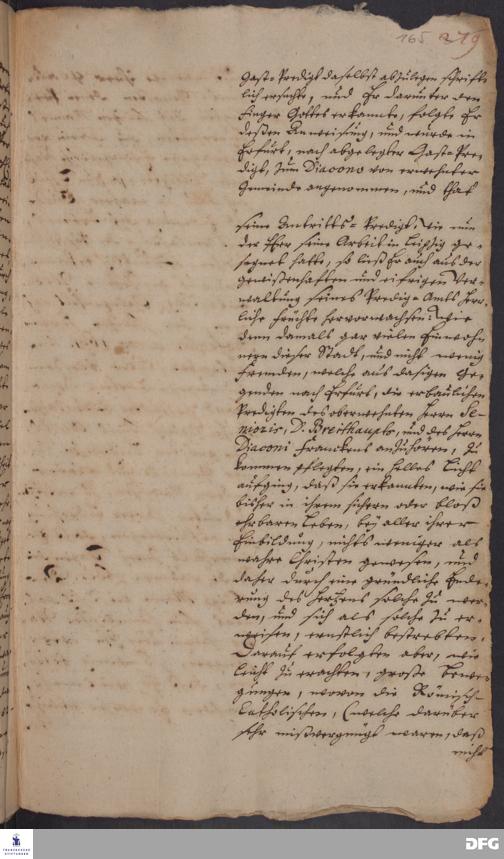 165 219
Gast-Predigt daselbst abzulegen schrifft-
lich ersuchte, und Er darunter den
Finger Gottes erkannte, folgte Er
deßen Anweisung, und wurde in
Erfurt, nach abgelegter Gast-Pre-
digt, zum Diacono von erwehnter
Gemeinde angenommen, und that
seine Antritts-Predigt. Wie nun
der HErr seine Arbeit in Leipzig ge-
segnet hatte, so ließ Er auch aus der
gewißenhaften und eifrigen Ver-
waltung seines Predig-Amts herr-
liche Früchte hervorwachsen: Wie
denn damals gar vielen Einwoh-
nern dieser Stadt, und nicht wenig
Fremden, welche aus dasigen Ge-
genden nach Erfurt, die erbaulichen
Predigten des oberwehnten Herrn Se-
nioris, D. Breithaupts, und des Herrn
Diaconi Franckens anzuhören, zu
kommen pflegten, ein helles Licht
aufging, daß sie erkannten, wie sie
bisher in ihrem sichern oder bloß
ehrbaren Leben, bey aller ihrer
Einbildung, nichts weniger als
wahre Christen gewesen, und
daher durch eine gründliche Ende-
rung des Herzens solche zu wer-
den, und sich als solche zu er-
weisen, ernstlich bestrebten.
Darauf erfolgten aber, wie
leicht zu erachten, große Bewe-
gungen, wovon die Römisch-
Catholischen, (welche darüber
sehr mißvergnügt waren, daß
nicht
FRANCKESCHE STIFTUNGEN
DFG